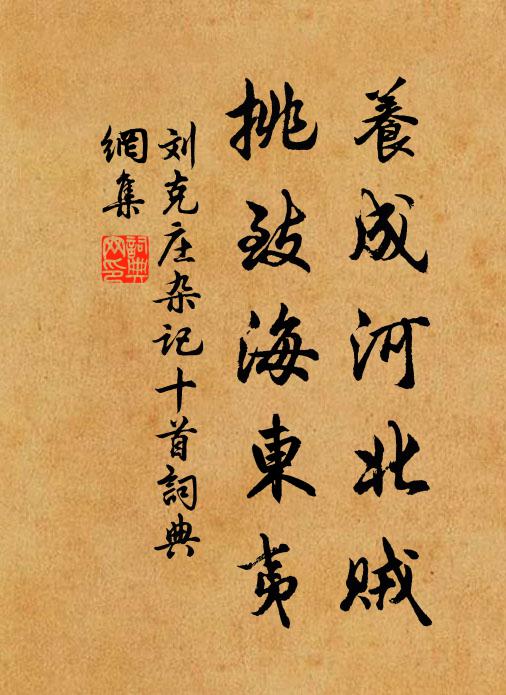 養成河北贼
挑致海東夷
刘克庄杂记十首詞典
網集
詞典
网印